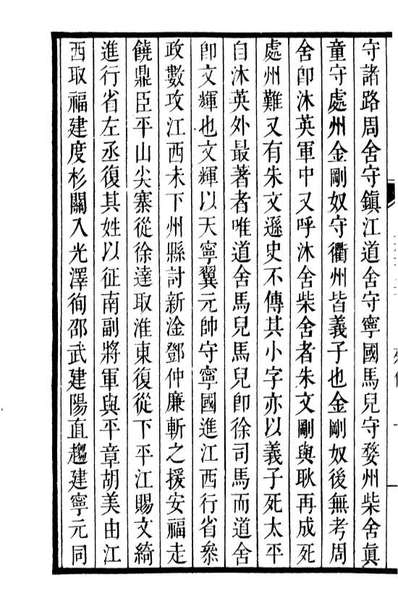 守諸路周舍守鎮江道舍守寧國馬兒守婺州柴舍眞
童守處州金剛奴守衢州皆義子也金剛奴後無考周
舍卽沐英軍中又呼沐舍柴舍者朱文剛與耿再成死
處州難又有朱文遜史不傳其小字亦以義子死太平
自沐英外最著者唯道舍馬兒馬兒卽徐司馬而道舍
卽文輝也文輝以天寧翼元帥守寧國進江西行省叅
政數攻江西未下州縣討新淦鄧仲廉斬之援安福走
饒鼎臣平山尖寨從徐達取淮東復從下平江賜文綺
進行省左丞復其姓以征南副將軍與平章胡美由江
西取福建度杉關入光澤徇邵武建陽直趨建寧元同